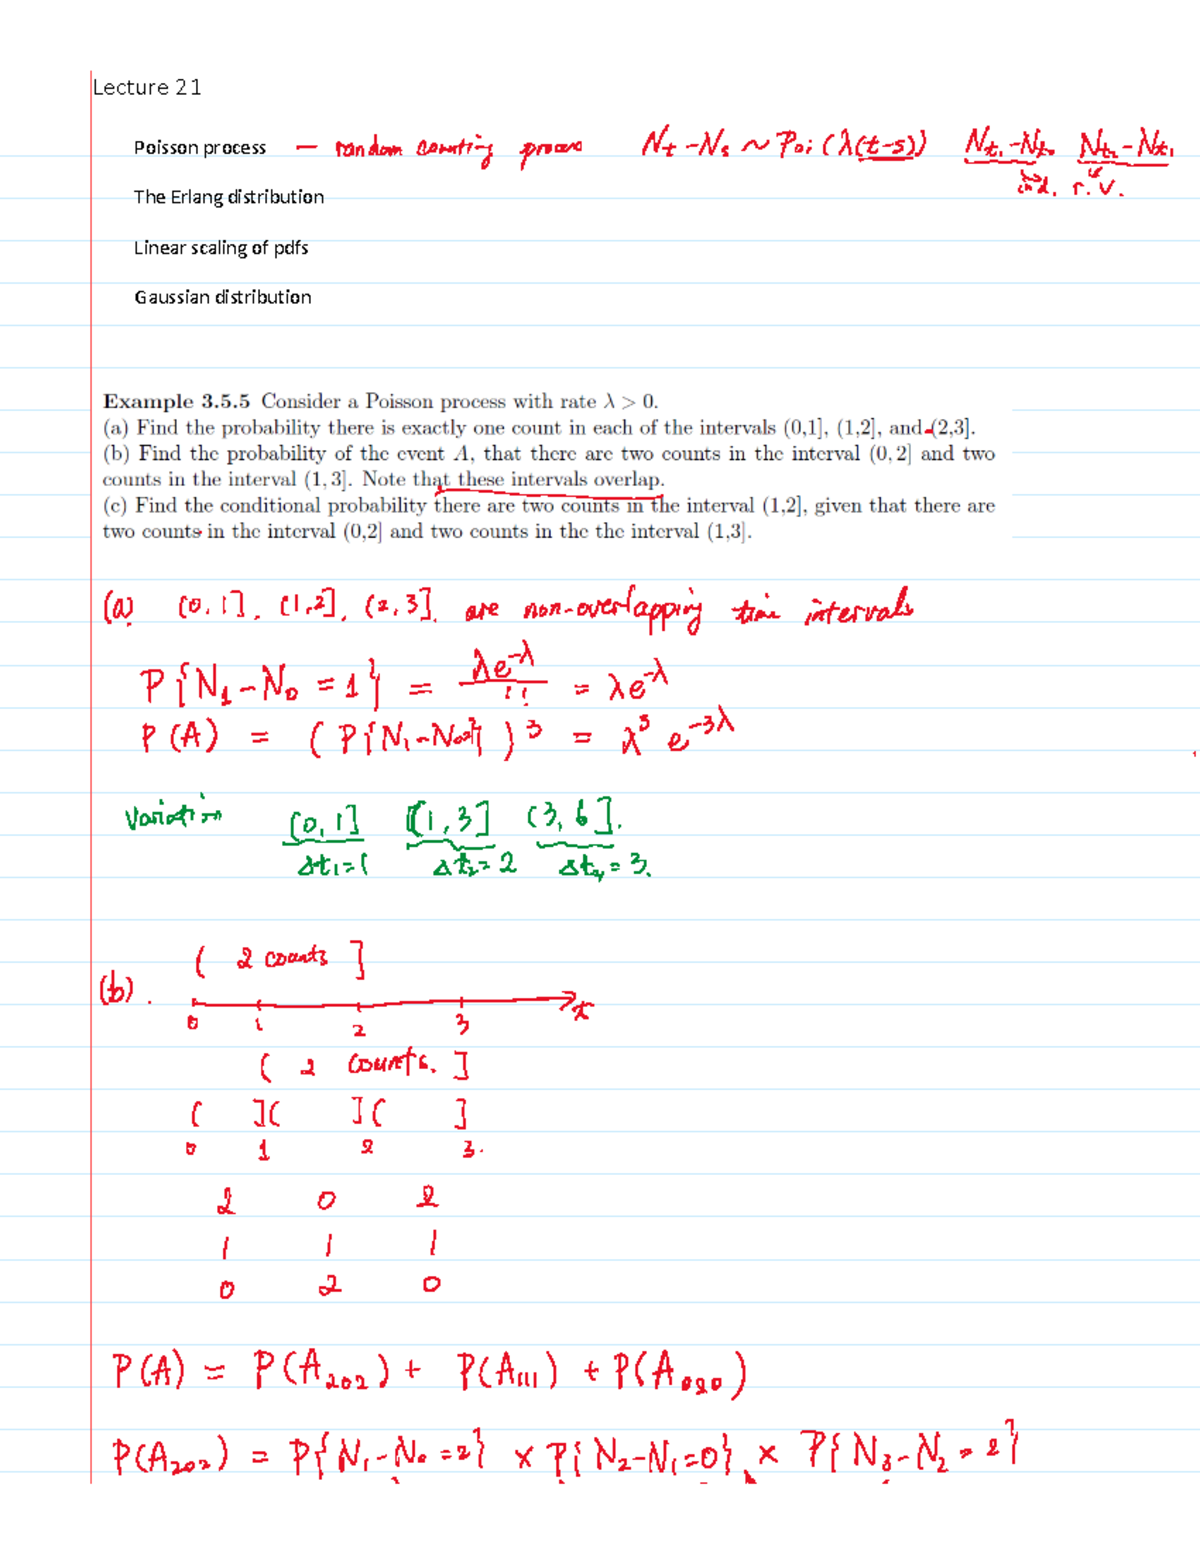 Lecture 21
Poisson process — random counting process N_t - N_s ~ Poi(λ(t-s)) N_t₁ - N_t₀ N_t₂ - N_t₁
ind. r.v.
The Erlang distribution
Linear scaling of pdfs
Gaussian distribution
Example 3.5.5 Consider a Poisson process with rate λ > 0.
(a) Find the probability there is exactly one count in each of the intervals (0,1], (1,2], and (2,3].
(b) Find the probability of the event A, that there are two counts in the interval (0, 2] and two
counts in the interval (1, 3]. Note that these intervals overlap.
(c) Find the conditional probability there are two counts in the interval (1,2], given that there are
two counts in the interval (0,2] and two counts in the the interval (1,3].
(a) (0,1], (1,2], (2,3]. are non-overlapping time intervals
P{N₁-N₀ = 1} = λe^-λ / 1! = λe^-λ
P(A) = (P{N₁-N₀=1})³ = λ³ e^-3λ
Variation [0,1] (1,3] (3,6].
Δt₁=1 Δt₂=2 = 3.
( 2 counts ]
(b).
0 1 2 3 t
( 2 counts. ]
( ]( ]( ]
0 1 2 3.
2 0 2
1 1 1
0 2 0
P(A) = P(A₂₀₂) + P(A₁₁₁) + P(A₀₂₀)
P(A₂₀₂) = P{N₁-N₀=2} × P{N₂-N₁=0} × P{N₃-N₂=2}